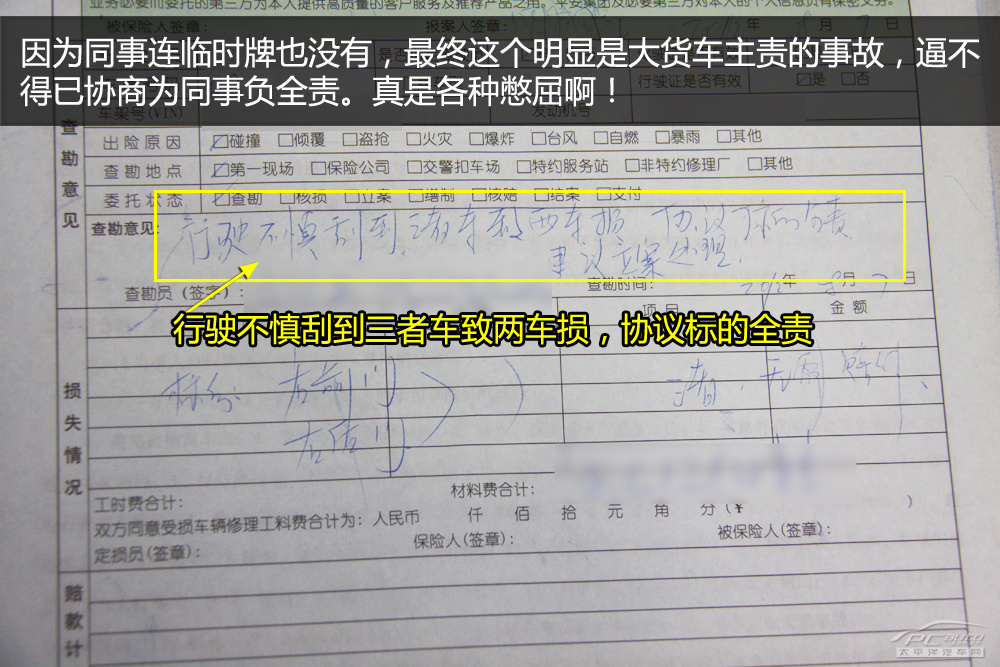 业务必要而委托的第三方为本人提供高质量的客户服务及推荐产品之用。平安集团及必要第三方对本人的个人信息负有保密义务。
被保险人签章： 报案人签章：
因为同事连临时牌也没有，最终这个明显是大货车主责的事故，逼不
得已协商为同事负全责。真是各种憋屈啊！
行驶证是否有效 ☑是 □否
车架号(VIN) 发动机号
查勘意见
出险原因 ☑碰撞 □倾覆 □盗抢 □火灾 □爆炸 □台风 □自燃 □暴雨 □其他
查勘地点 ☑第一现场 □保险公司 □交警扣车场 □特约服务站 □非特约修理厂 □其他
委托状态 ☑查勘 □核损 □立案 □缮制 □核赔 □结案 □支付
查勘意见： 行驶不慎刮到三者车致两车损 协议标的全责
立案处理.
查勘员（签字）： 查勘时间： 年 月 日
项目 金额
行驶不慎刮到三者车致两车损，协议标的全责
损失情况
标的： 左前门
左后门
三者，无需赔付、
工时费合计： 材料费合计：
双方同意受损车辆修理工料费合计为：人民币 仟 佰 拾 元 角 分（¥ ）
定损员(签章)： 保险人(签章)： 被保险人(签章)：
赔款计
PCauto
太平洋汽车网